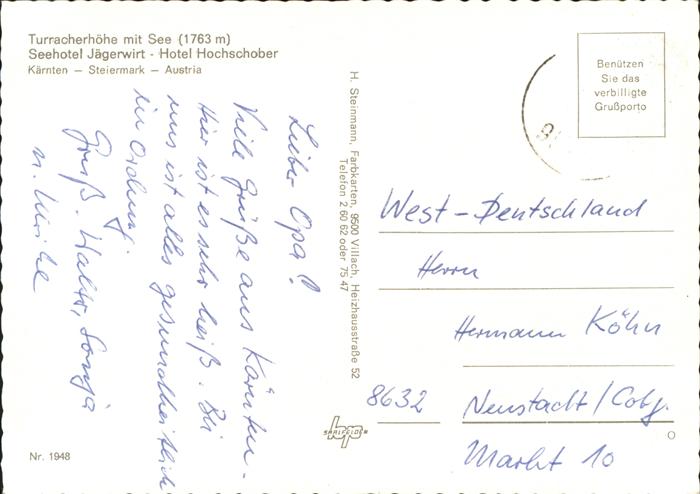 Turracherhöhe mit See (1763 m)
Seehotel Jägerwirt - Hotel Hochschober
Kärnten — Steiermark — Austria
Lieber Opa!
Viele Grüße aus Kärnten.
Hier ist es sehr heiß. Bei
uns ist alles gesundheitlich
in Ordnung.
Gruß. Walter, Sonja
u. Ulrike
Nr. 1948
H. Steinmann, Farbkarten, 9500 Villach, Heizhausstraße 52
Telefon 2 60 62 oder 75 47
Benützen
Sie das
verbilligte
Grußporto
West-Deutschland
Herrn
Hermann Köhn
8632 Neustadt/Cobg.
Markt 10